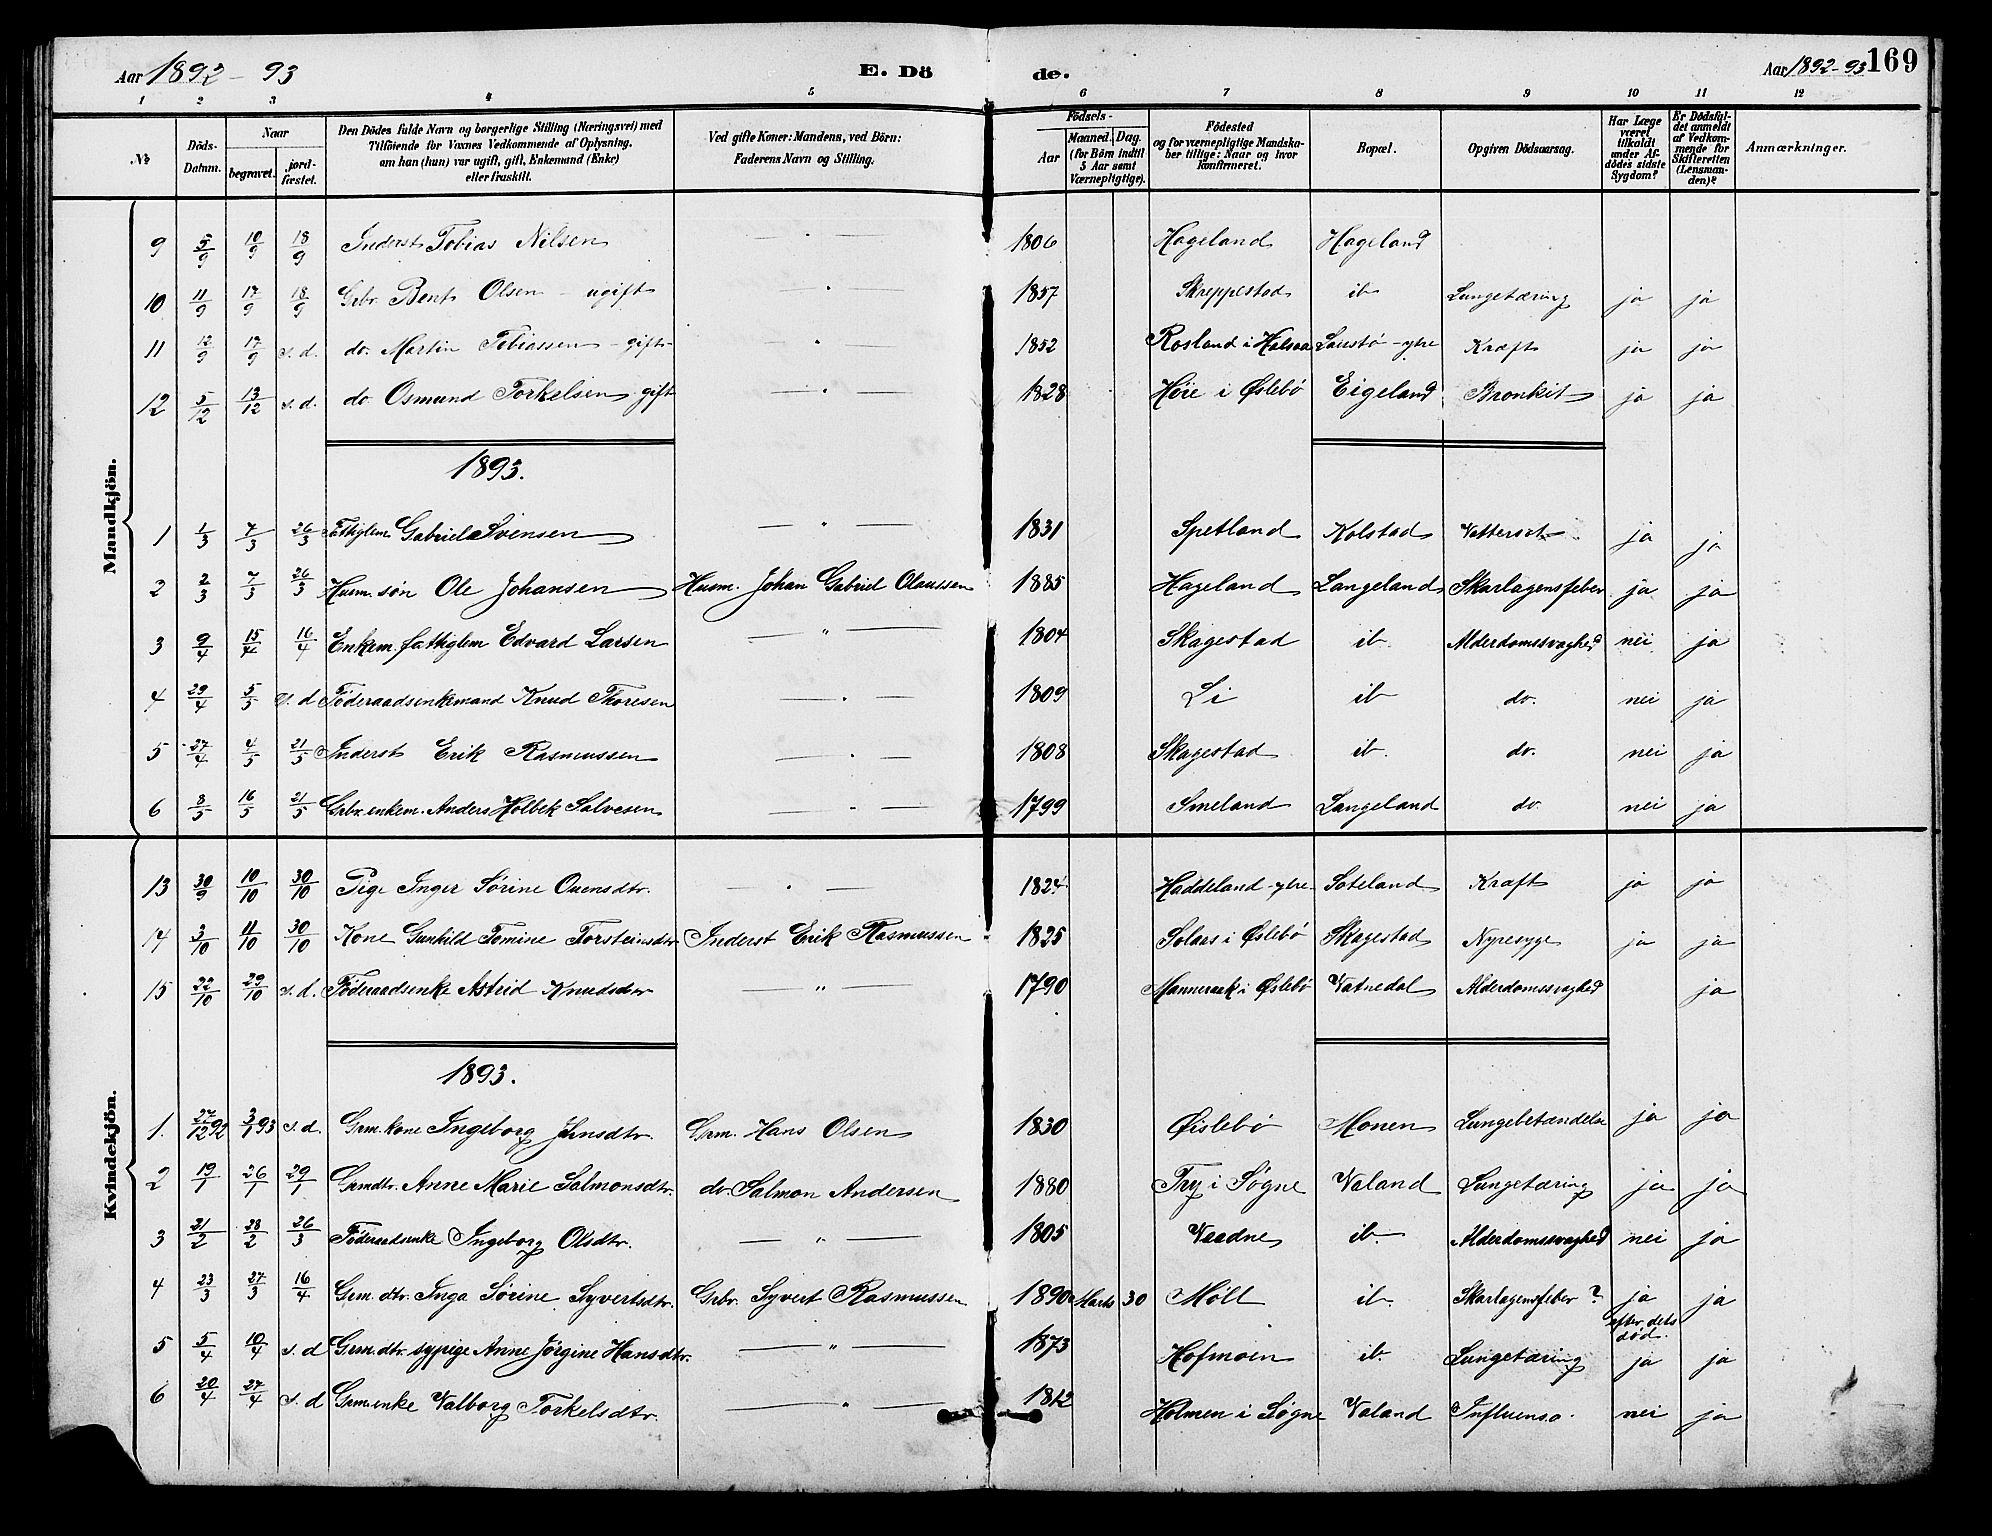 Aar 1892-93 E. Dö de. Aar 1892-93 169
1 2 3 4 5 6 7 8 9 10 11 12
No Döds-Datum. Naar begravet. jord-fæstet. Den Dödes fulde Navn og borgerlige Stilling (Næringsvei) med Tilföiende for Voxnes Vedkommende af Oplysning, om han (hun) var ugift, gift, Enkemand (Enke) eller fraskilt. Ved gifte Koner: Mandens, ved Börn: Faderens Navn og Stilling. Födsels- Aar Maaned. Dag. (for Börn indtil 5 Aar samt Værnepligtige). Födested og for værnepligtige Mandskaber tillige: Naar og hvor konfirmeret. Bopæl. Opgiven Dödsaarsag. Har Læge været tilkaldt under Afdödes sidste Sygdom? Er Dödsfaldet anmeldt af Vedkommende for Skifteretten (Lensmanden)? Anmærkninger.
Mandkjön.
9 5/9 10/9 18/9 Inderst Tobias Nilsen — " — 1806 Hageland Hageland
10 11/9 17/9 18/9 Gbr. Bent Olsen - ugift " 1857 Skreppestad ib Lungetæring ja ja
11 12/9 17/9 s.d. do. Martin Tobiassen - gift — " — 1852 Rosland i Halsaa -ytre Kræft ja ja
12 5/12 13/12 s.d. do Osmund Torkelsen gift — " — 1828 Höie i Øslebö Eigeland Bronkit ja ja
1893.
1 1/3 7/3 26/3 Fattiglem Gabriel Svensen — " — 1831 Spetland Kolstad Vattersot ja ja
2 2/3 7/3 26/3 Husm. søn Ole Johansen Husm. Johan Gabriel Olaussen 1885 Hageland Langeland Skarlagensfeber ja ja
3 9/4 15/4 16/4 Enkem. fattiglem Edvard Larsen — " — 1804 Skagestad ib. Alderdomssvaghed nei ja
4 29/4 5/5 s.d Föderaadsenkemand Knud Thoresen — " — 1809 Li ib do. nei ja
5 27/4 4/5 21/5 Inderst Erik Rasmussen — " — 1808 Skagestad ib. do. nei ja
6 8/5 16/5 21/5 Grbr. enkem. Anders Holbek Salvesen — " — 1799 Smeland Langeland do. nei ja
Kvindekjön.
13 30/9 10/10 30/10 Pige Inger Sörine Ouensdtr. — " — 1824 Haddeland -ytre Soteland Kræft ja ja
14 3/10 11/10 30/10 Kone Gunhild Tomine Torsteinsdtr Inderst Erik Rasmussen 1825 Solaas i Øslebö Skagestad Nyresyge ja ja
15 22/10 29/10 s.d. Föderaadsenke Astrid Knudsdtr — " — 1790 Manneraak i Øslebö Vatnedal Alderdomssvaghed ja
1893.
1. 27/12 92 3/1 93 s.d. Grm. kone Ingeborg Jensdtr. Grm. Hans Olsen 1830 Øislebö Monen Lungebetændelse ja ja
2 19/1 26/1 29/1 Grmdtr. Anne Marie Salmonsdtr. do Salmon Andersen 1880 Try i Søgne Valand Lungetæring ja ja
3 21/2 28/2 26/3 Föderaadsenke Ingeborg Olsdtr. — " — 1805 Vaadne ib. Alderdomssvaghed nei ja
4 23/3 27/3 16/4 Grm. dtr. Inga Sörine Syvertsdtr. Grbr. Syvert Rasmussen 1890 Marts 30 Möll ib. Skarlagensfeber ? ja efter dets död. ja
5 5/4 10/4 s.d Grm. dtr. sypige Anne Jörgine Hansdtr. — " — 1873 Hofmoen ib. Lungetæring ja ja
6 20/4 27/4 s.d Grm. enke Valborg Torkelsdtr. — " — 1812 Holmen i Søgne Valand Influensa. nei ja